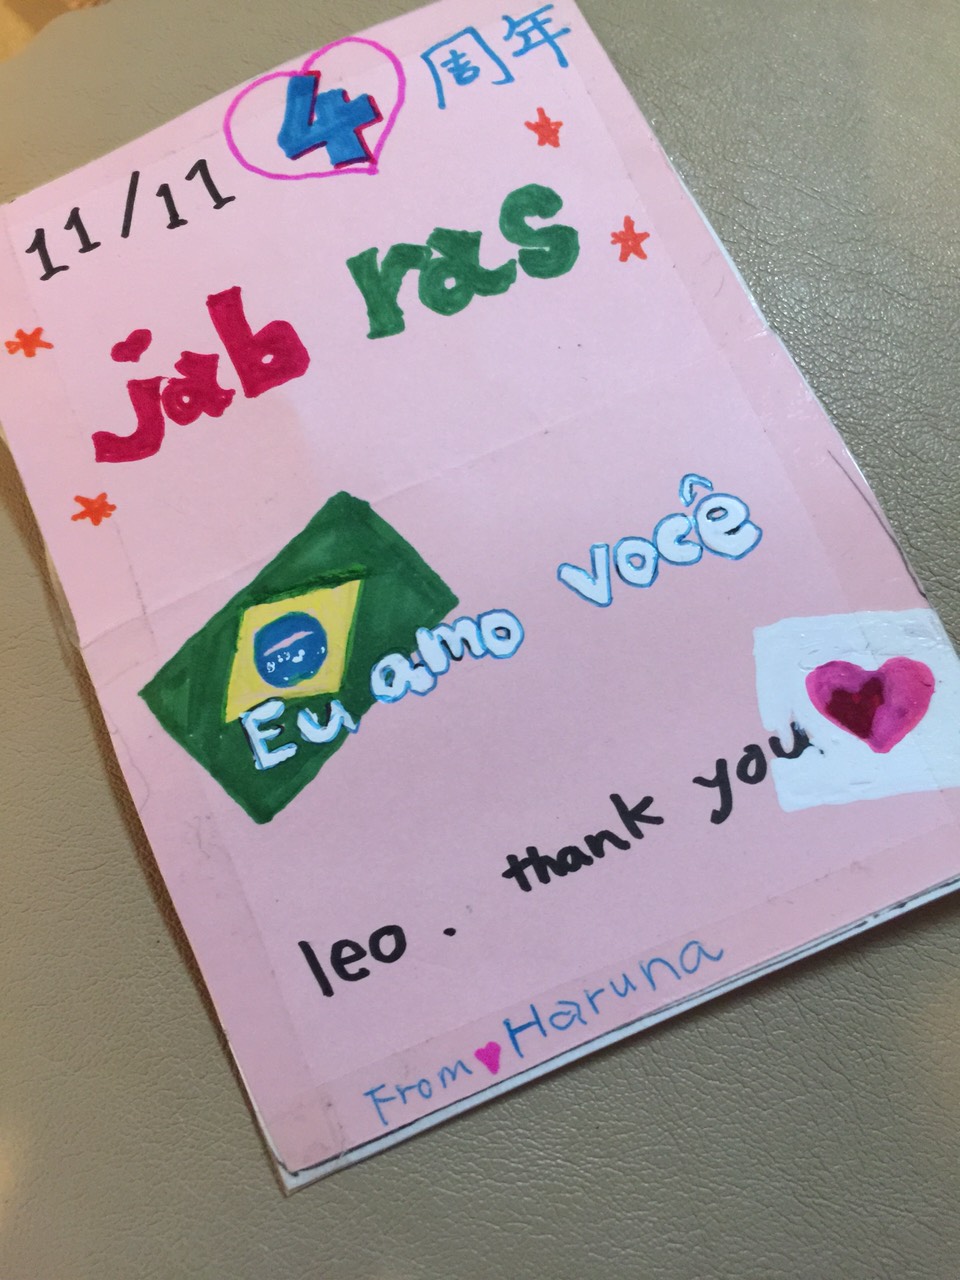 4周年
11/11
jab ras
Eu amo você
thank you
leo.
From Haruna